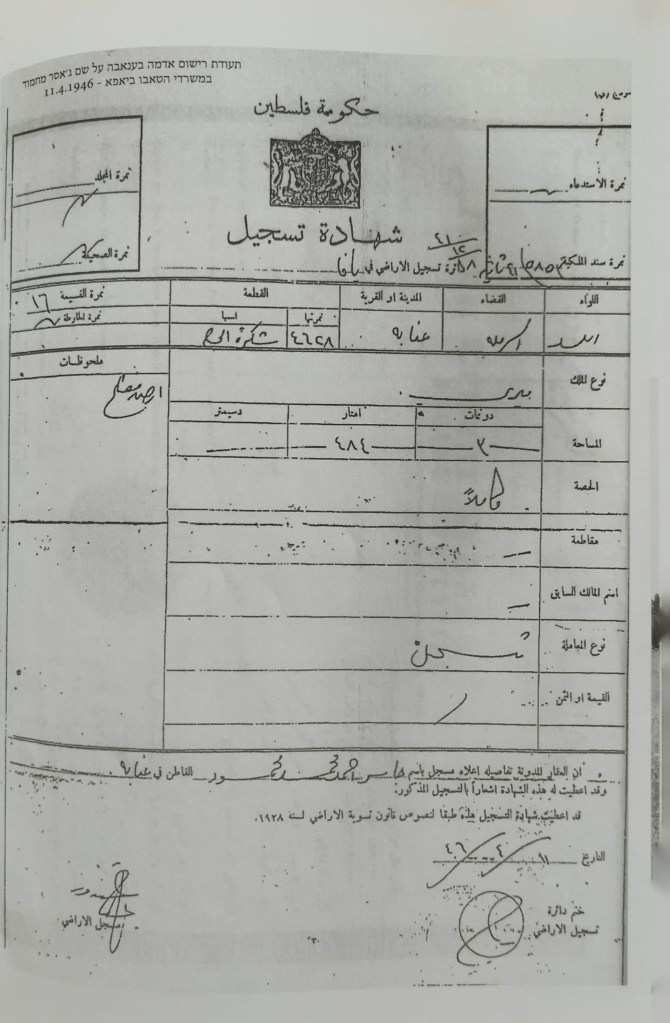 תעודת רישום אדמה בענאבה על שם ג'אסר מחמוד
במשרדי הטאבו ביאפא - 11.4.1946
حكومة فلسطين
نمرة المجلد
نمرة الاستدعاء
شهادة تسجيل
نمرة الصحيفة
نمرة سند الملكية
دائرة تسجيل الاراضي في يافا
اللواء القضاء المدينة او القرية القطعة نمرة القسيمة ١٦
نمرتها اسمها نمرة الخارطة
اللد الرملة عنابه ٤٦٢٨
ملحوظات
نوع الملك ميري
دونمات امتار دسيمتر
المساحة ٣ ٤٨٤
الحصة كاملاً
مقاطعة
اسم المالك السابق
نوع المعاملة تسجيل
القيمة او الثمن
ان العقار المدونة تفاصيله اعلاه مسجل باسم جاسر احمد محمود القاطن في عنابه
وقد اعطيت له هذه الشهادة اشعاراً بالتسجيل المذكور.
قد اعطيت شهادة التسجيل هذه طبقا لنصوص قانون تسوية الاراضي لسنة ١٩٢٨.
التاريخ ١١/٤/٤٦
ختم دائرة
تسجيل الاراضي
مسجل الاراضي